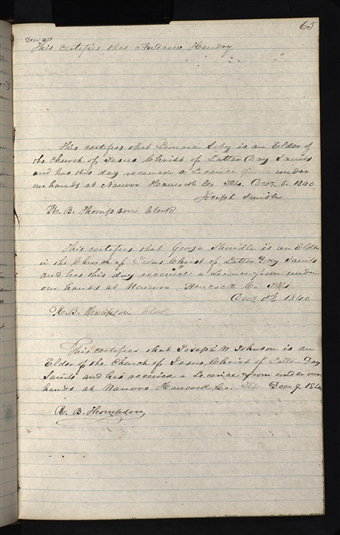 65
This certifies that Andrew Henry
This certifies that Lemara is an Elder of
the Church of Jesus Christ of Latter Day Saints
and has this day received a Licence from under
our hands at Nauvoo Hancock Co. Ills. 1840
Joseph Smith
R. B. Thompson Clerk
This certifies that George is an Elder
in the Church of Jesus Christ of Latter Day Saints
and has this day received a Licence from under
our hands at Nauvoo Hancock Co Ills
1840
R. B. Thompson Clerk
This certifies that Joseph W Johnson is an
Elder of the Church of Jesus Christ of Latter Day
Saints and has received a Licence from under our
hands at Nauvoo Hancock Co. Ills 9. 1840
R. B. Thompson